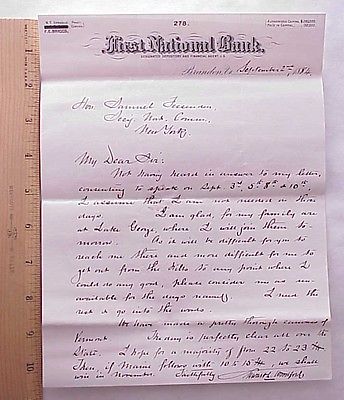 278.
N.T. SPRAGUE President
F.E. BRIGGS
AUTHORIZED CAPITAL $
PAID IN CAPITAL
First National Bank,
DESIGNATED DEPOSITORY AND FINANCIAL AGENT U.S.
Brandon, Vt September 2nd, 1884
Hon. Samuel Fessenden,
Secy. Nat. Comm.
New York,
My Dear Sir:
Not having heard in answer to my letter,
consenting to speak on Sept. 3d 5th 8th & 10th,
I assume that I am not needed on those
days. I am glad, for my family are
at Lake George, where I will join them to-
morrow. As it will be difficult for you to
reach me there and more difficult for me to
get out from the hills to any point where I
could do any good, please consider me as un-
available for the days named. I need the
rest & go into the woods.
We have made a pretty thorough canvass of
Vermont. Victory is perfectly clear all over the
State. I hope for a majority of from 22 to 23
Then, if Maine follows with 10 & 15, we shall
win in November. Faithfully
Stewart L. Woodford.
1
2
3
4
5
6
7
8
9
10